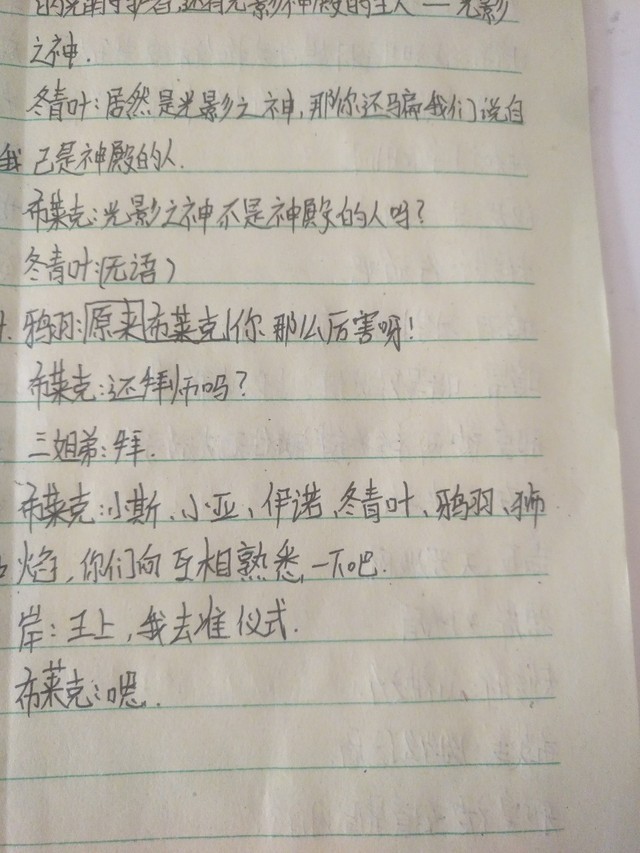 的光明守护者,还有光影神殿的主人——光影
之神.
冬青叶:居然是光影之神,那你还骗我们说自
己是神殿的人.
布莱克:光影之神不是神殿的人吗?
冬青叶:(无语)
鸦羽:原来布莱克你那么厉害呀!
布莱克:还拜师吗?
三姐弟:拜.
布莱克:小斯、小亚、伊诺、冬青叶、鸦羽、狮
焰,你们向互相熟悉一下吧.
岸:王上,我去准仪式.
布莱克:嗯.